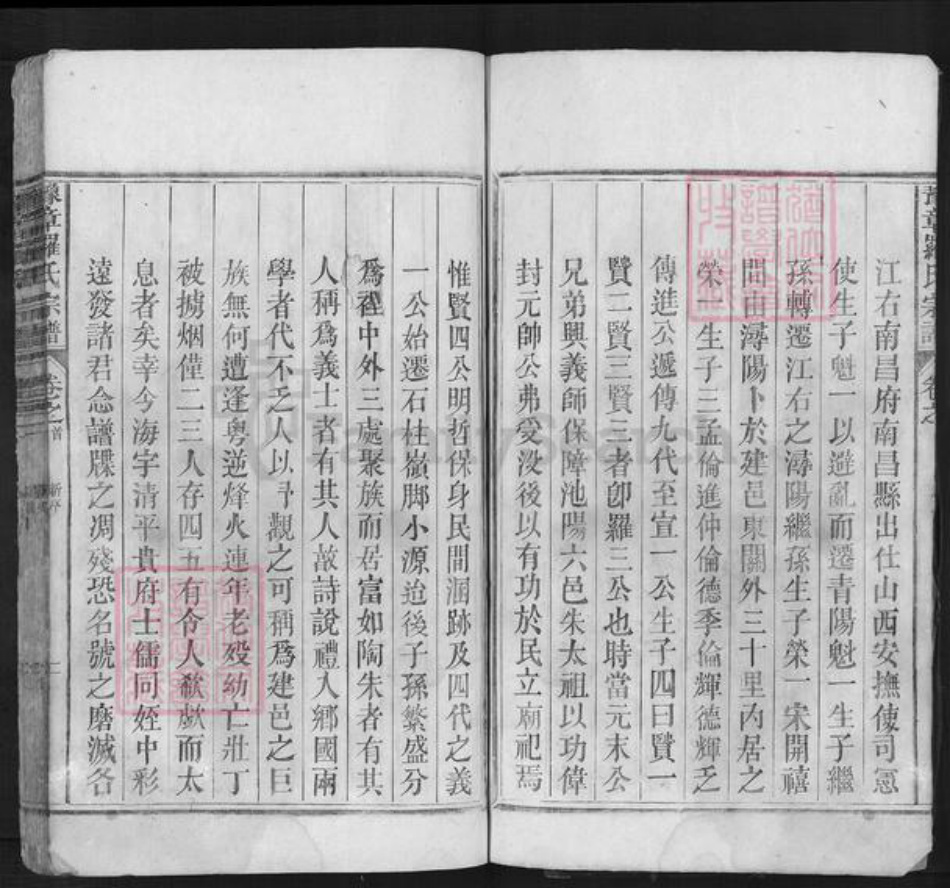 豫章羅氏宗譜
卷之
江右南昌府南昌縣出仕山西安撫使司憲
使生子魁一以避亂而遷青陽魁一生子繼
孫轉遷江右之潯陽繼孫生子榮一宋開禧
間由潯陽卜於建邑東關外三十里內居之
榮一生子三孟倫進仲倫德季倫輝德輝乏
傳進公遞傳九代至宣一公生子四曰賢一
賢二賢三賢三者卽羅三公也時當元末公
兄弟興義師保障池陽六邑朱太祖以功偉
封元帥公弗受没後以有功於民立廟祀焉
惟賢四公明哲保身民間溷跡及四代之義
一公始遷石柱嶺脚小源迨後子孫繁盛分
爲裡中外三處聚族而居富如陶朱者有其
人稱爲義士者有其人故詩說禮入鄉國兩
學者代不乏人以予觀之可稱爲建邑之巨
族無何遭逢粵逆烽火連年老殁幼亡壯丁
被擄烟僅二三人存四五有令人欷歔而太
息者矣幸今海宇清平貴府士儒同姪中彩
遠發諸君念譜牒之凋殘恐名號之磨滅各
豫章羅氏宗譜
卷之首
新序